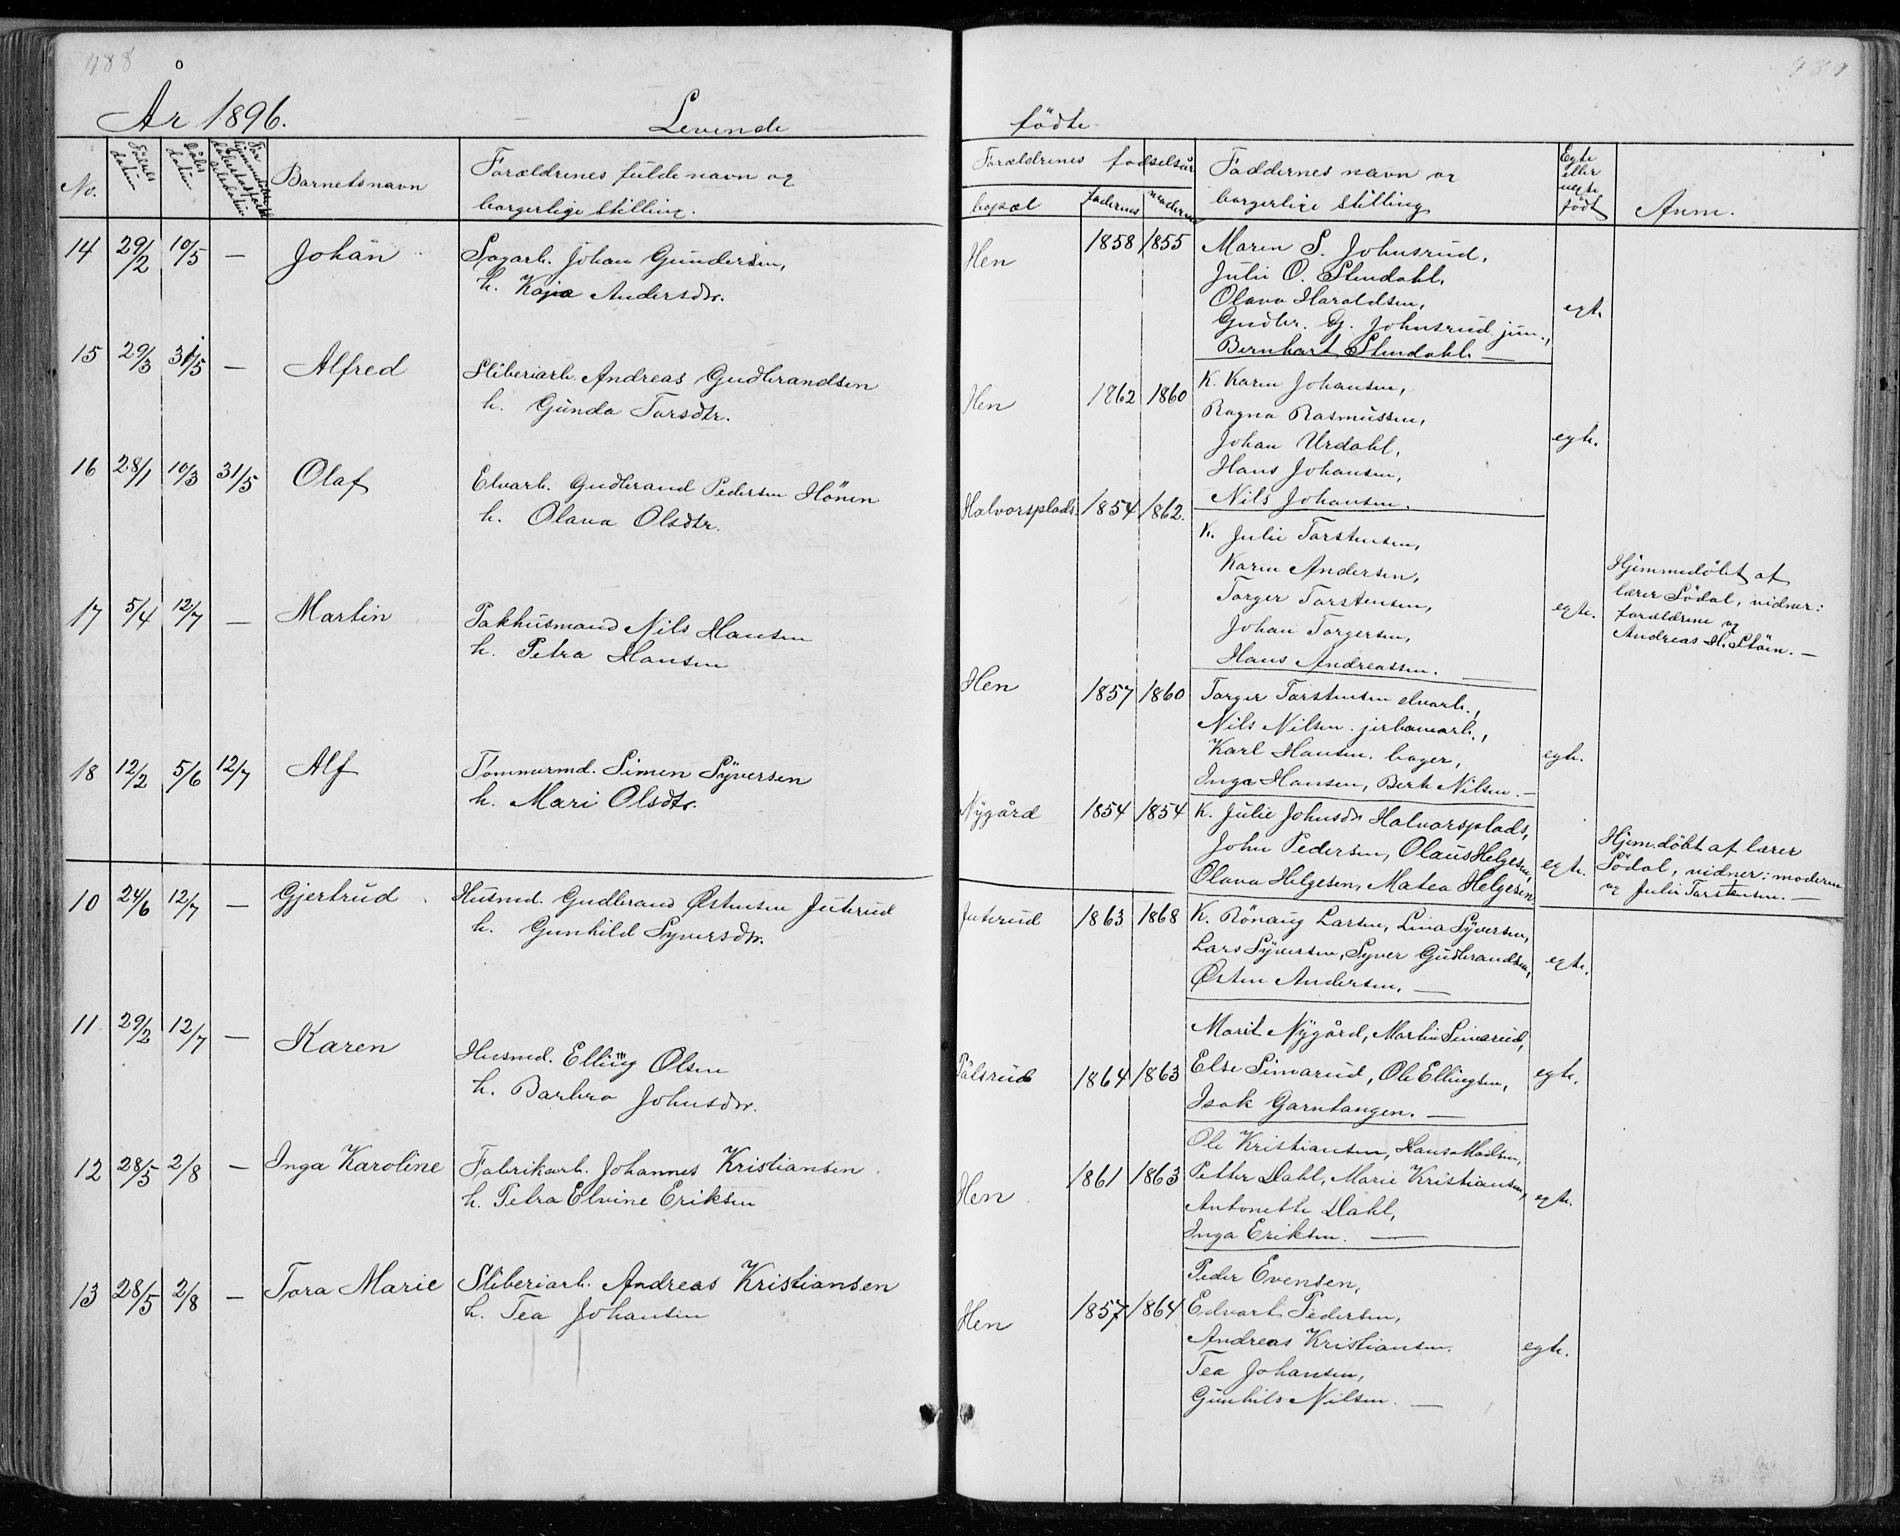 488
År 1896. Levende
No.
Födsels
datum
Dåbs
datum
Barnetsnavn
Forældrenes fulde navn og
borgerlige stilling.
14 29/2 10/5 — Johan Sagarb. Johan Gundersen,
h. Kaja Andersdtr.
15 29/3 31/5 — Alfred Sliberiarb. Andreas Gudbrandsen
h. Gunda Torsdtr.
16 28/1 10/3 31/5 Olaf Elvarb. Gudbrand Pedersen Hönen
h. Olava Olsdtr.
17 5/4 12/7 — Martin Pakhusmand Nils Hansen
h. Petra Hansen
18 12/2 5/6 12/7 Alf Tömmermd. Simen Syversen
h. Mari Olsdtr.
10 24/6 12/7 — Gjertrud Husmd. Gudbrand Østensen Juterud
h. Gunhild Syversdtr.
11 29/2 12/7 — Karen Husmd. Elling Olsen
h. Barbro Johnsdtr.
12 28/5 2/8 — Inga Karoline Fabrikarb. Johannes Kristiansen
h. Petra Elvine Eriksen
13 28/5 2/8 — Tora Marie Sliberiarb. Andreas Kristiansen
h. Tea Johansen
födte.
Forældrenes fødselsår
bopæl faderens moderens
Faddernes navn og
borgerlige stilling
Egte
eller
uegte
födt
Anm.
Hen 1858 1855 Maren S. Johnsrud,
Julie O. Stendahl,
Olava Haraldsen,
Gudbr. G. Johnsrud jun.,
Bernhart Stendahl. —
egt.
Hen 1862 1860 K. Karen Johansen,
Ragna Rasmussen,
Johan Urdahl,
Hans Johansen,
Nils Johansen.
egte.
Halvorsplads 1854 1862. K. Julie Torstensen,
Karen Andersen,
Torger Torstensen,
Johan Torgersen,
Hans Andreassen. —
egte.
Hjemmedöbt af
lærer Södal, vidner:
forældrene og
Andreas H. Stöen. —
Hen 1857 1860 Torger Torstensen elvarb.,
Nils Nilsen jerbanearb.,
Karl Hansen bager,
Inga Hansen, Berte Nilsen. —
egte.
Nygård 1854 1854 K. Julie Johnsdtr Halvorsplads,
John Pedersen, Olaus Helgesen,
Olava Helgesen, Matea Helgesen.
egte.
Hjem.döbt af lærer
Södal, vidner: moderen
og Julie Torstensen. —
Juterud 1863 1868 K. Rönaug Larsen, Lina Syversen,
Lars Syversen, Syver Gudbrandsen,
Østen Andersen. —
egte.
Pålsrud 1864 1863 Marit Nygård, Martin Simarud,
Else Simarud, Ole Ellingsen,
Isak Garntangen. —
egte.
Hen 1861 1863 Ole Kristiansen, Hans Madsen,
Petter Dahl, Marie Kristiansen,
Antonette Dahl,
Inga Eriksen. —
egte.
Hen 1857 1864 Peder Evensen,
Edvart Pedersen,
Andreas Kristiansen,
Tea Johansen,
Gunhild Nilsen. —
egte.